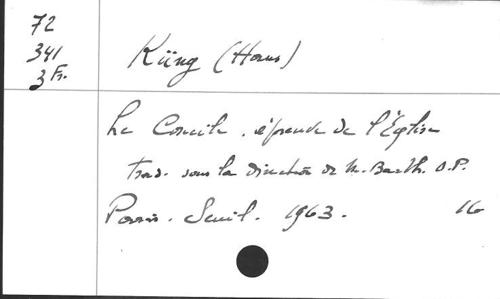 72
341
3 Fr.
Küng (Hans)
Le Concile. épreuve de l'Église
Trad. sous la direction de M. Barth. O.P.
Paris. Seuil. 1963. 16